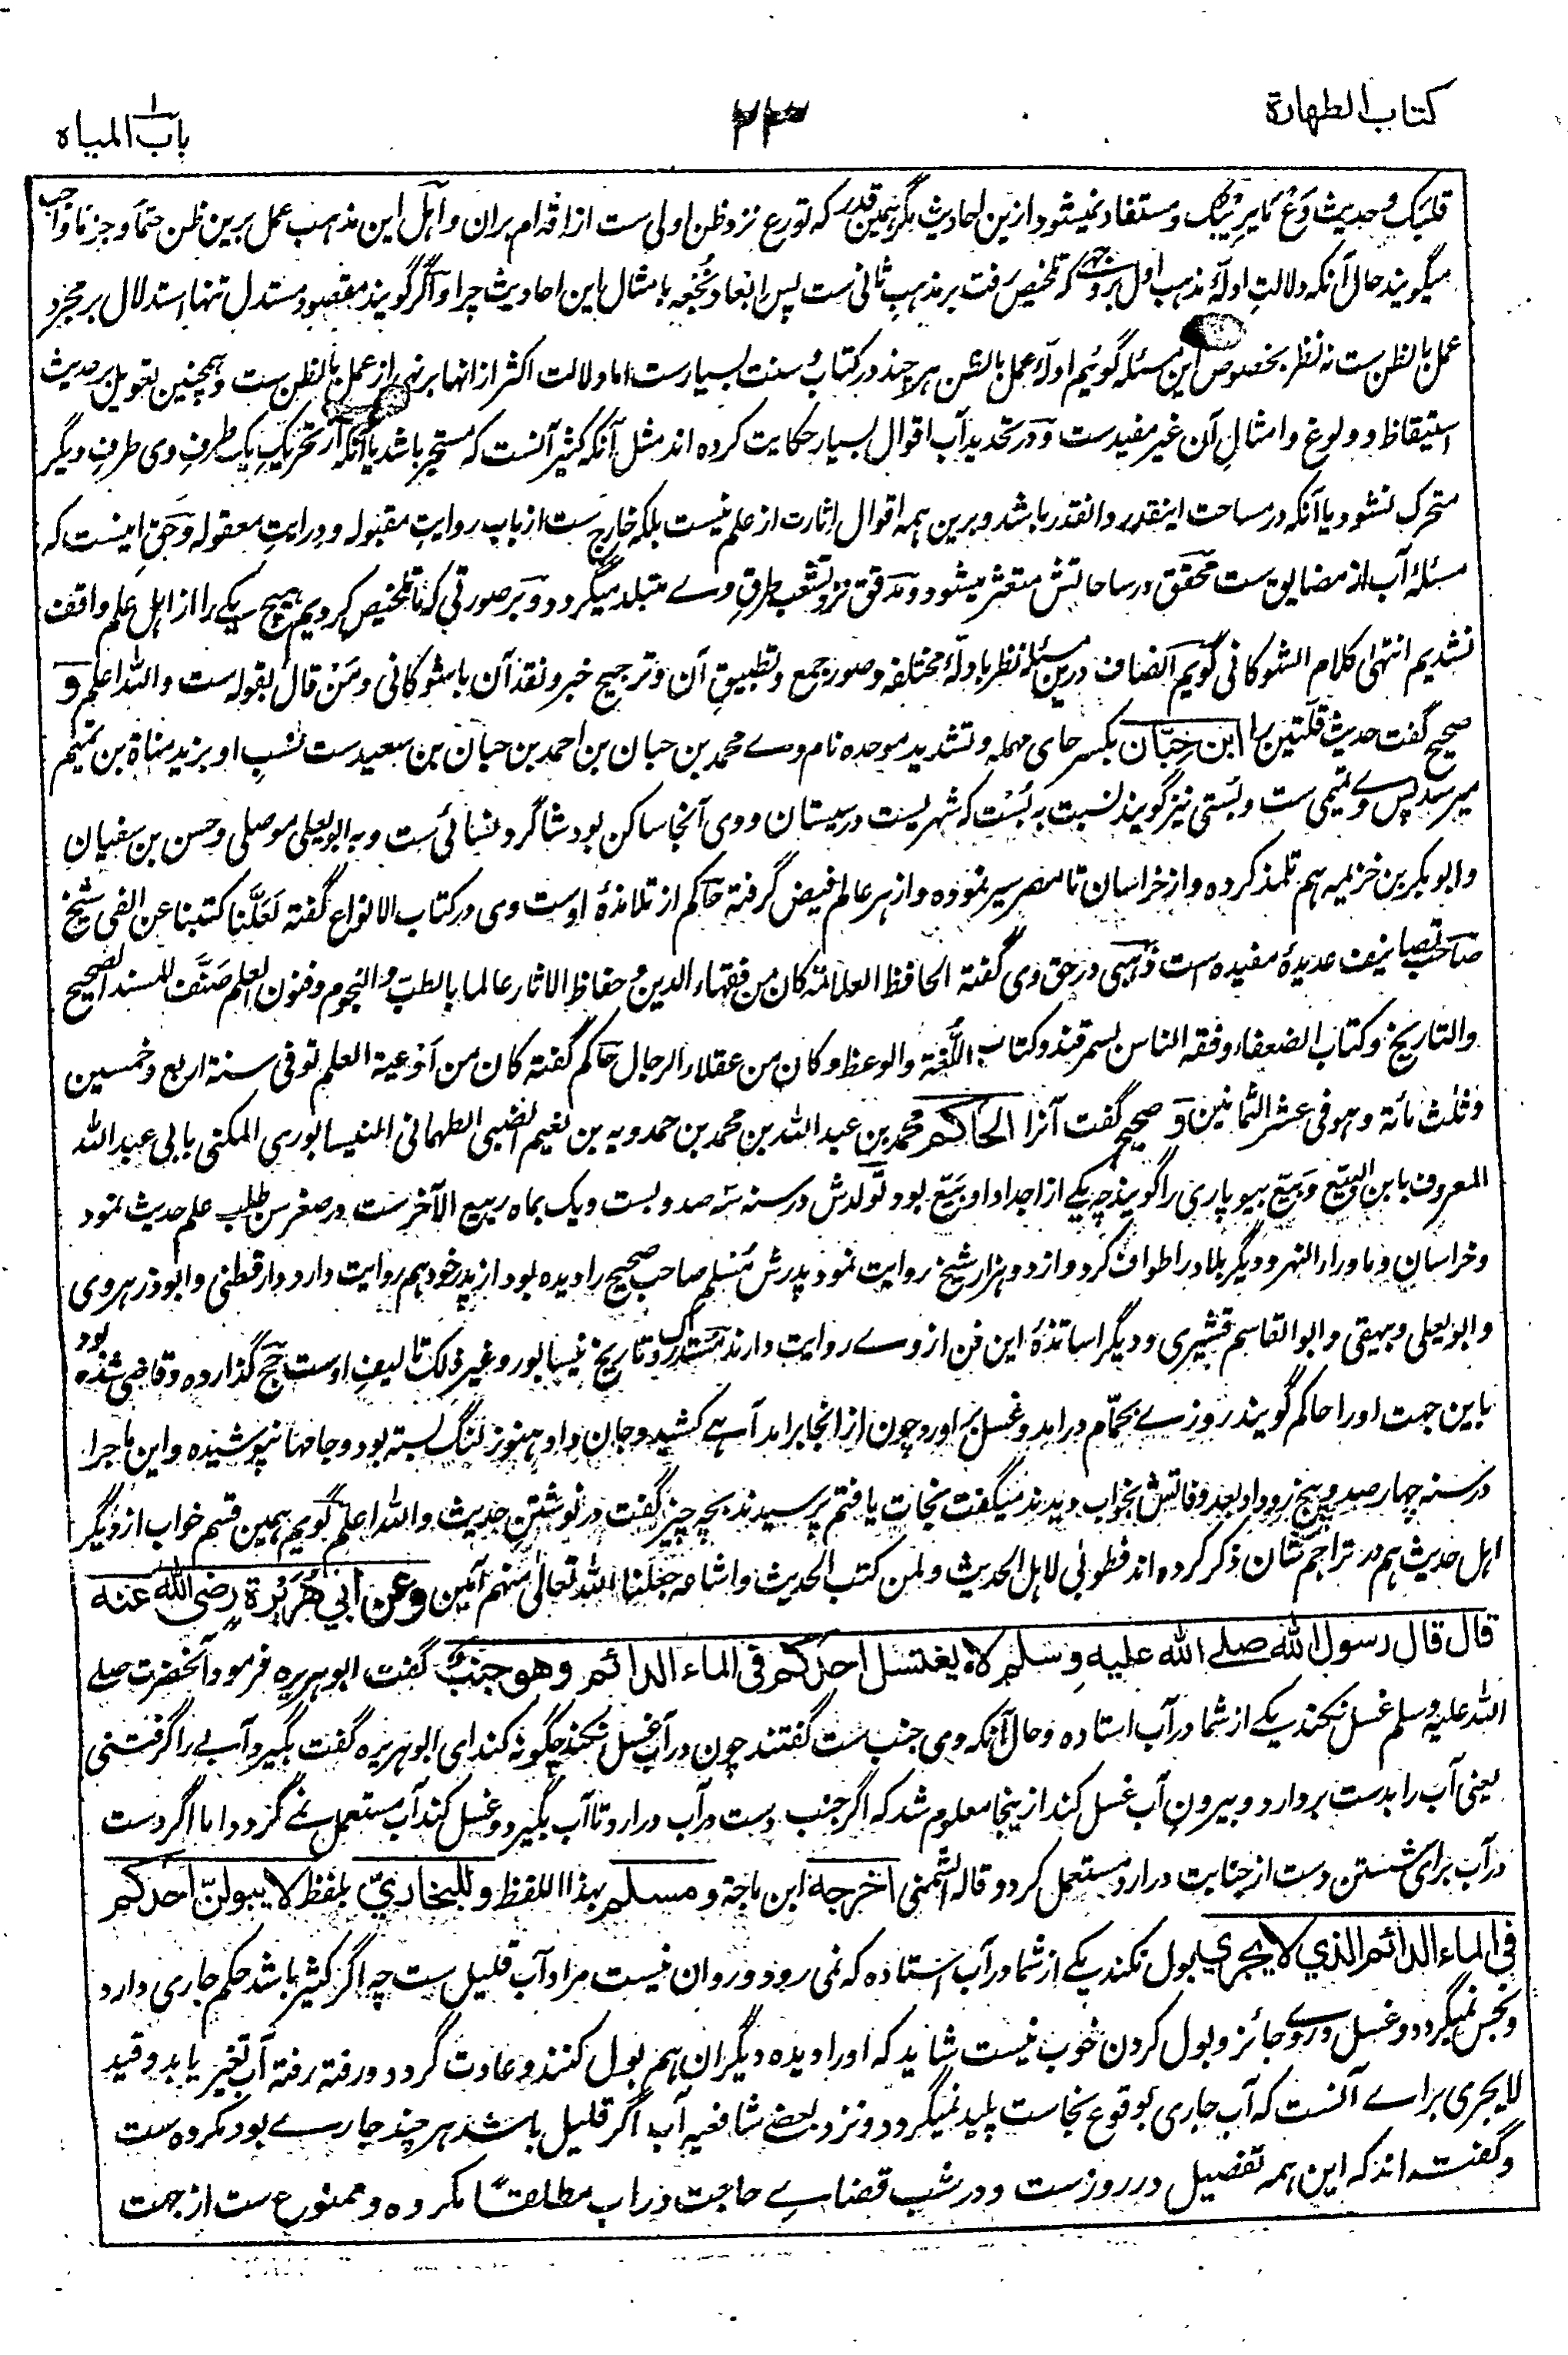 کتاب الطهارة
۲۳
باب المیاه
قلبک و حدیث دع ما یریبک و مستفاد نمیشود ازین احادیث مگر همین قدر که تورع نزد ظن اولی ست از اقدام بران و اهل این مذهب عمل برین ظن حتما و جزما واجب
میگویند حال آنکه دلالت ادلهٔ مذهب اول بر وجهی که تلخیص رفت بر مذهب ثانی ست پس ابعاد نجعه بامثال این احادیث چرا و اگر گویند مقصود مستدل تنها استدلال بر مجرد
عمل بالظن ست نه نظر بخصوص این مسئله گوئیم ادلهٔ عمل بالظن هر چند در کتاب و سنت بسیارست اما دلالت اکثر ازانها بر نهی از عمل بالظن ست و همچنین تعویل بر حدیث
استیقاظ و ولوغ و امثال آن غیر مفیدست و در تحدید آب اقوال بسیار حکایت کرده اند مثل آنکه کثیر آنست که مستبحر باشد یا آنکه از تحریک یک طرف وی طرف دیگر
متحرک نشود یا آنکه در مساحت اینقدر و انقدر باشد و برین همه اقوال اثارت از علم نیست بلکه خارج ست از باب روایت مقبوله و درایت معقوله و حق اینست که
مسئلهٔ آب از مضایق ست محقق در ساحاتش متعثر میشود و مدقق نزد تشعب طرق وے متبلد میگردد و بر صورتی که ما تلخیص کردیم هیچ یکے را از اهل علم واقف
نشدیم انتهی کلام الشوکانی گویم انصاف درین مسئله نظر بادلهٔ مختلفه و صور جمع و تطبیق آن و ترجیح خبر و نقد آن با شوکانی و من قال بقوله ست و الله اعلم و
صحیح گفت حدیث قلتین را ابن حبان بکسر حای مهمله و تشدید موحده نام وے محمد بن حبان بن احمد بن حبان بن سعیدست نسب او بزید مناة بن تمیم
میرسد پس وے تمیمی ست و بستی نیز گویند نسبت به بست که شهریست در سیستان و وی آنجا ساکن بود شاگرد نسائی ست و به ابو یعلی موصلی و حسن بن سفیان
و ابوبکر بن خزیمه هم تلمذ کرده و از خراسان تا مصر سیر نموده و از هر عالم فیض گرفته حاکم از تلامذهٔ اوست وی در کتاب الانواع گفته لعلنا کتبنا عن الفی شیخ
صاحب تصانیف عدیدهٔ مفیده است ذهبی در حق وی گفته الحافظ العلامة کان من فقهاء الدین و حفاظ الاثار عالما بالطب و النجوم و فنون العلم صنف المسند الصحیح
والتاریخ و کتاب الضعفاء و فقه الناس بسمرقند و کتاب اللغة والوعظ و کان من عقلاء الرجال حاکم گفته کان من اوعیة العلم توفی سنة اربع و خمسین
و ثلث مائة و هو فی عشر الثمانین و صحیح گفت آنرا الحاکم محمد بن عبد الله بن محمد بن حمدویه بن نعیم الضبی الطهمانی النیسابوری المکنی بابی عبد الله
المعروف بابن البیّع و بیّع بیوپاری را گویند چه یکے از اجداد او بیّع بود تولدش در سنه سه صد و بست و یک بماه ربیع الآخرست در صغر سن طلب علم حدیث نمود
و خراسان و ماوراء النهر و دیگر بلاد را طواف کرد و از دو هزار شیخ روایت نمود پدرش مسلم صاحب صحیح را دیده بود از پدر خود هم روایت دارد دارقطنی و ابوذر هروی
و ابو یعلی و بیهقی و ابو القاسم قشیری و دیگر اساتذهٔ این فن از وے روایت دارند مستدرک و تاریخ نیسابور و غیر ذلک تالیف اوست حج گذارده و قاضی شده بود
باین جهت او را حاکم گویند روزے بحمّام درامد و غسل براورد چون از انجا برامد آہے کشید و جان داد و هنوز لنگ بسته بود و جامها نپوشیده و این ماجرا
در سنه چهار صد و پنج رو داد بعد وفاتش بخواب دیدند میگفت نجات یافتم پرسیدند بچه چیز گفت در نوشتن حدیث و الله اعلم گویم همین قسم خواب از دیگر
اهل حدیث هم در تراجم شان ذکر کرده اند فطوبی لاهل الحدیث و لمن کتب الحدیث و اشاعه جعلنا الله تعالی منهم آمین وعن ابی هریرة رضی الله عنه
قال قال رسول الله صلی الله علیه وسلم لا یغتسل احدکم فی الماء الدائم وهو جنب گفت ابوهریره فرمود آنحضرت صلی
الله علیه وسلم غسل نکند یکے از شما در آب استاده و حال آنکه وی جنب ست گفتند چون در آب غسل نکند چگونه کند ای ابوهریره گفت بگیرد آب را گرفتنی
یعنی آب را بدست بردارد و بیرون آب غسل کند از ینجا معلوم شد که اگر جنب دست در آب درارد تا آب بگیرد و غسل کند آب مستعمل نمے گردد اما اگر دست
در آب برای شستن دست از جنابت درارد مستعمل گردد قاله الشمنی اخرجه ابن ماجة و مسلم بهذا اللفظ وللبخاری بلفظ لا یبولنّ احدکم
فی الماء الدائم الذی لا یجری بول نکند یکے از شما در آب استاده که نمی رود و روان نیست مراد آب قلیل ست چه اگر کثیر باشد حکم جاری دارد
و نجس نمیگردد و غسل دروے جائز و بول کردن خوب نیست شاید که او را دیده دیگران هم بول کنند و عادت گردد و رفته رفته آب تغیر یابد و قید
لا یجری براے آنست که آب جاری بوقوع نجاست پلید نمیگردد و نزد بعضے شافعیه آب اگر قلیل باشد هر چند جارے بود مکروه ست
و گفته اند که این همه تفصیل در روزست و در شب قضاے حاجت در اب مطلقاً مکروه و ممنوع ست از جهت